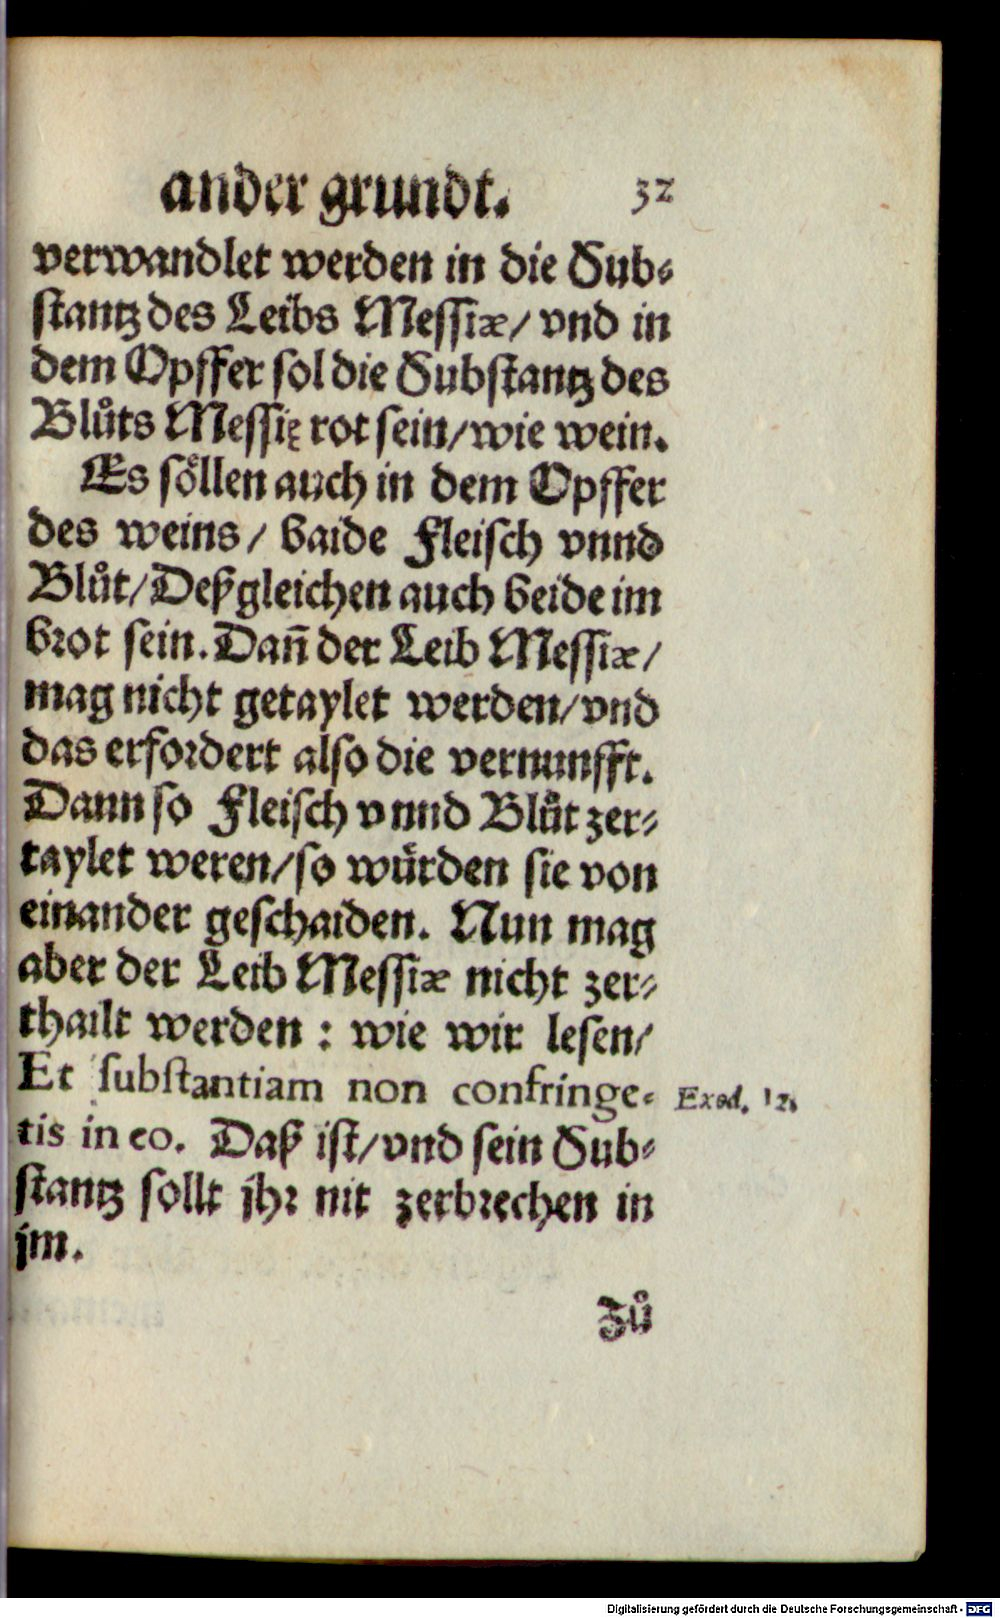 ander grundt. 32
verwandlet werden in die Sub⸗
stantz des Leibs Messiæ/ vnd in
dem Opffer sol die Substantz des
Blůts Messię rot sein/wie wein.
Es söllen auch in dem Opffer
des weins/ baide Fleisch vnnd
Blůt/Deßgleichen auch beide im
brot sein. Dañ der Leib Messiæ/
mag nicht getaylet werden/vnd
das erfordert also die vernunfft.
Dann so Fleisch vnnd Blůt zer⸗
taylet weren/so würden sie von
einander geschaiden. Nun mag
aber der Leib Messiæ nicht zer⸗
thailt werden : wie wir lesen/
Et substantiam non confringe⸗ Exod. 12.
tis in eo. Daß ist/vnd sein Sub⸗
stantz sollt jhr nit zerbrechen in
jm.
Zů
Digitalisierung gefördert durch die Deutsche Forschungsgemeinschaft - DFG